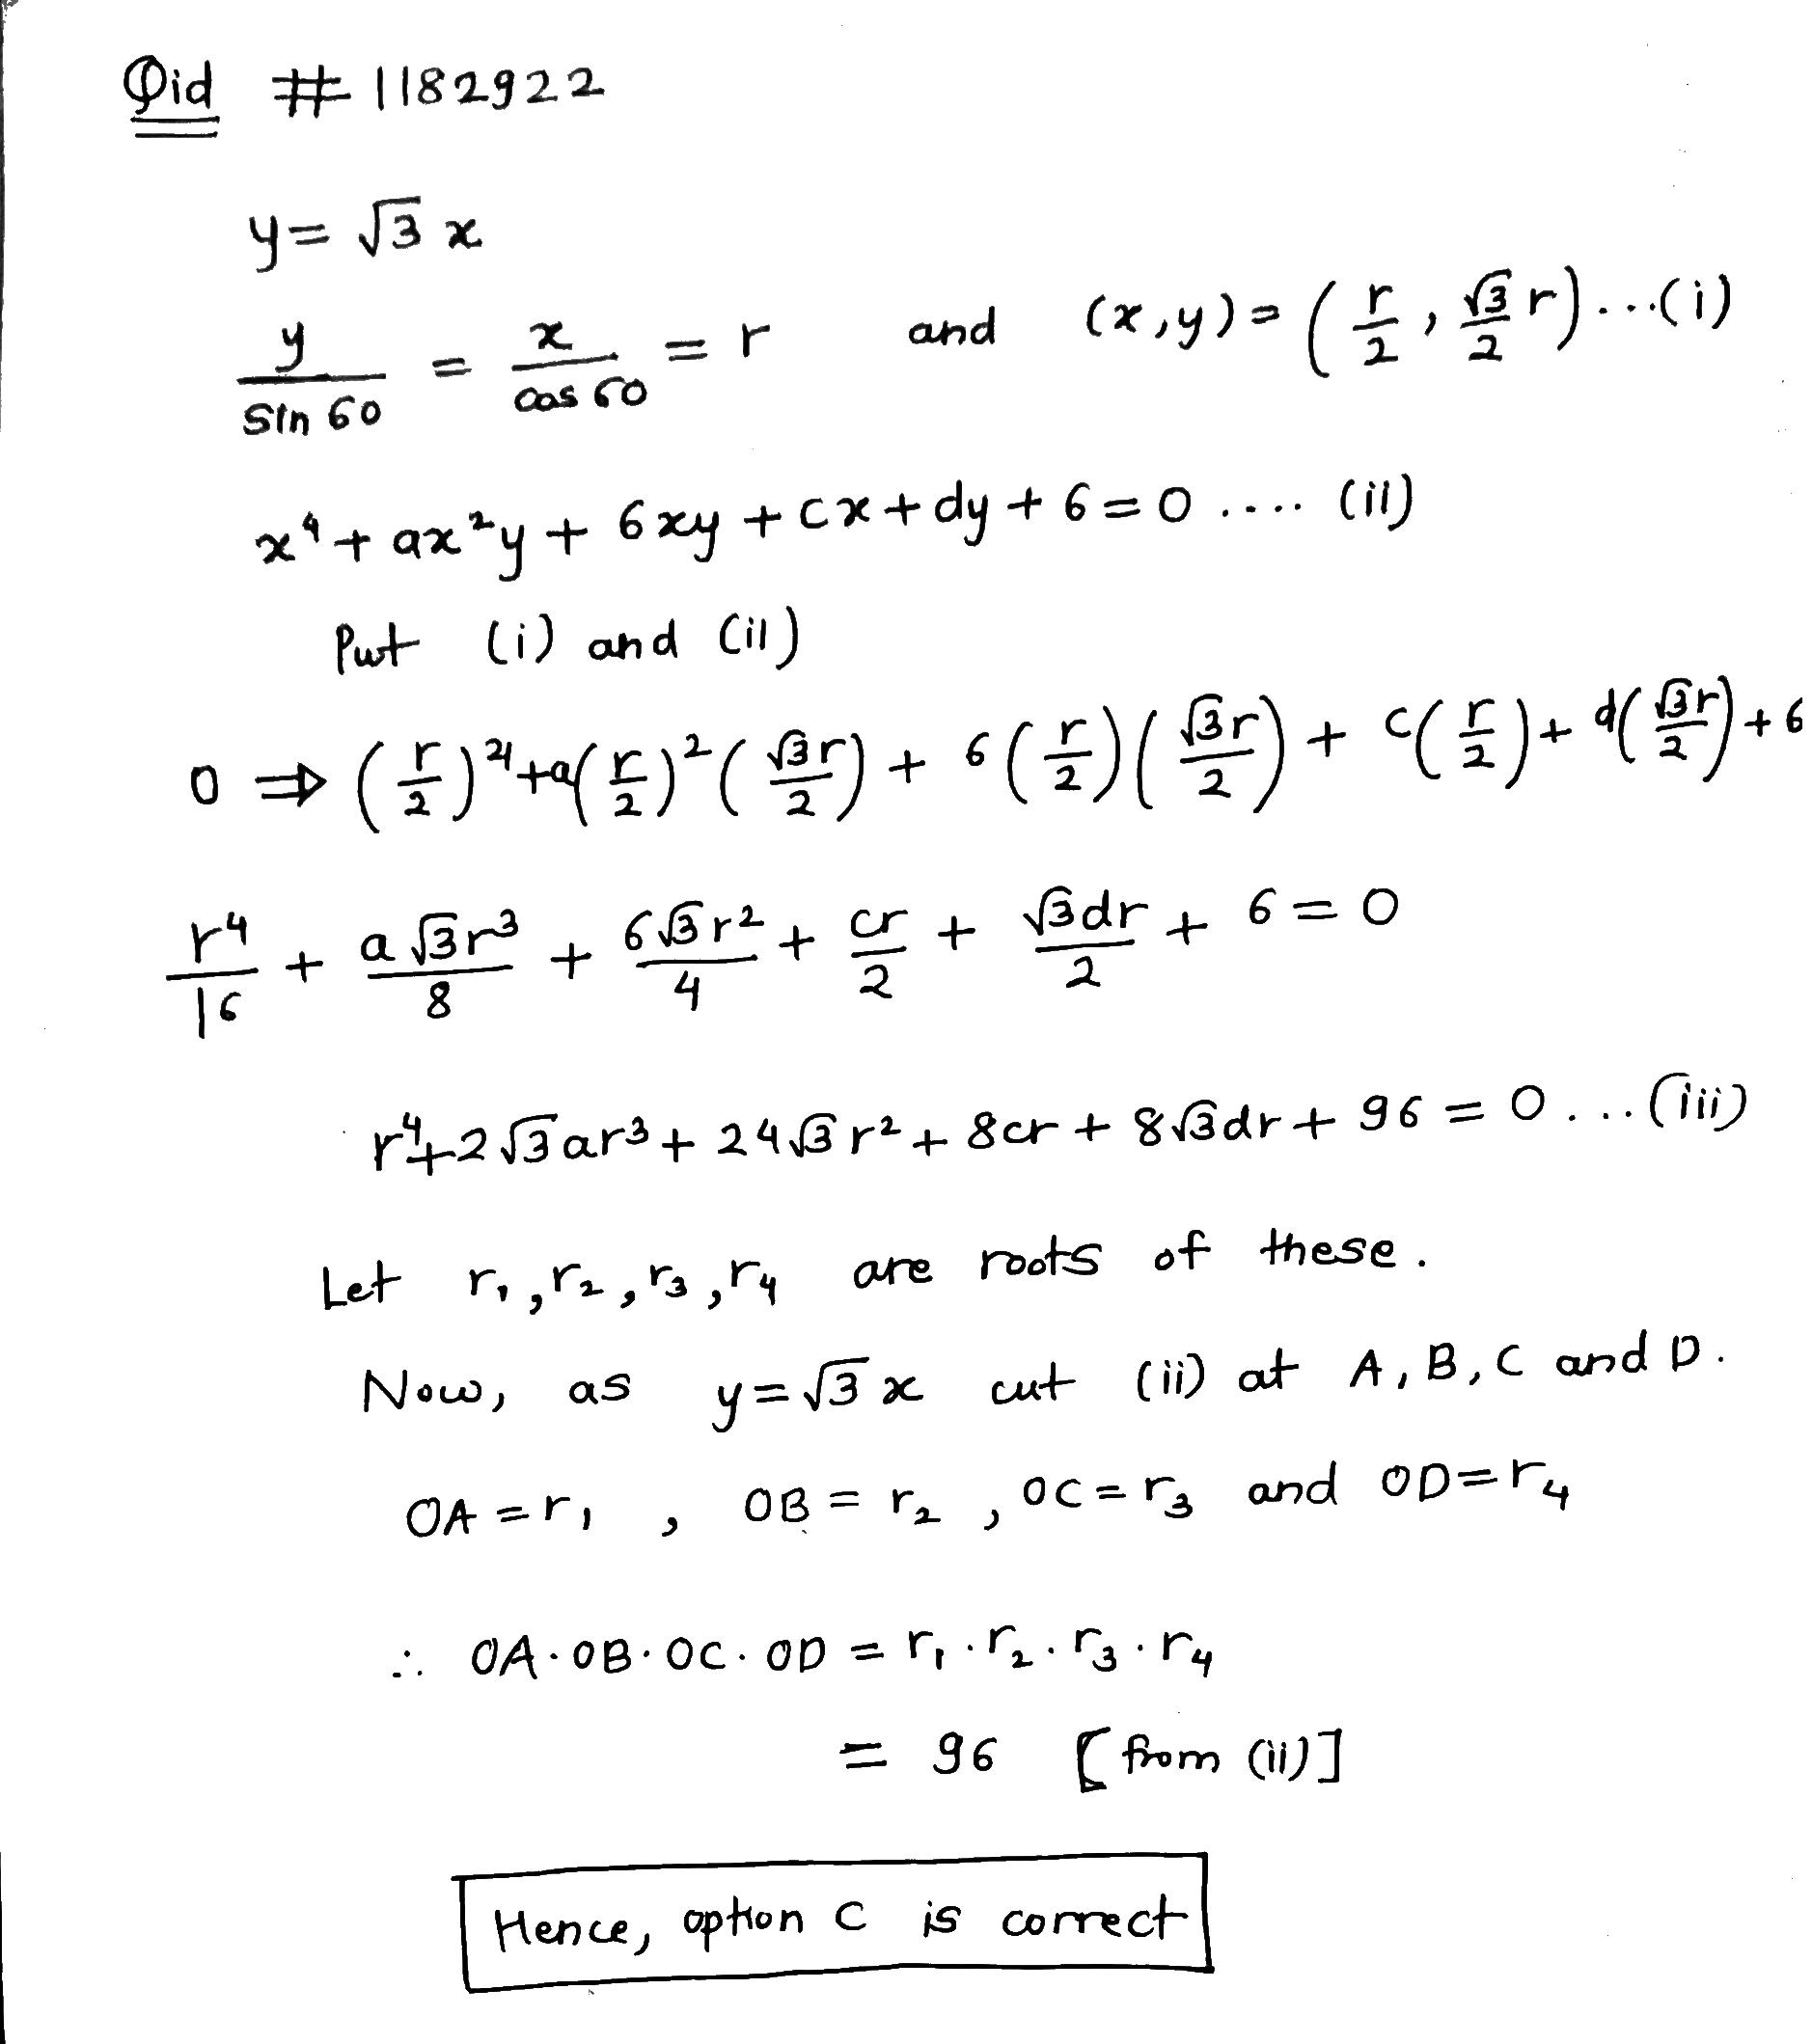 Qid # 1182922
y = √3 x
y/sin 60 = x/cos 60 = r and (x,y) = (r/2, √3/2 r)...(i)
x⁴ + ax²y + 6xy + cx + dy + 6 = 0 .... (ii)
Put (i) and (ii)
0 ⇒ (r/2)⁴ + a(r/2)²(√3r/2) + 6(r/2)(√3r/2) + c(r/2) + d(√3r/2) + 6
r⁴/16 + a√3r³/8 + 6√3r²/4 + cr/2 + √3dr/2 + 6 = 0
r⁴ + 2√3ar³ + 24√3r² + 8cr + 8√3dr + 96 = 0 ... (iii)
Let r₁, r₂, r₃, r₄ are roots of these.
Now, as y = √3 x cut (ii) at A, B, C and D.
OA = r₁, OB = r₂, OC = r₃ and OD = r₄
∴ OA·OB·OC·OD = r₁·r₂·r₃·r₄
= 96 [from (ii)]
Hence, option C is correct